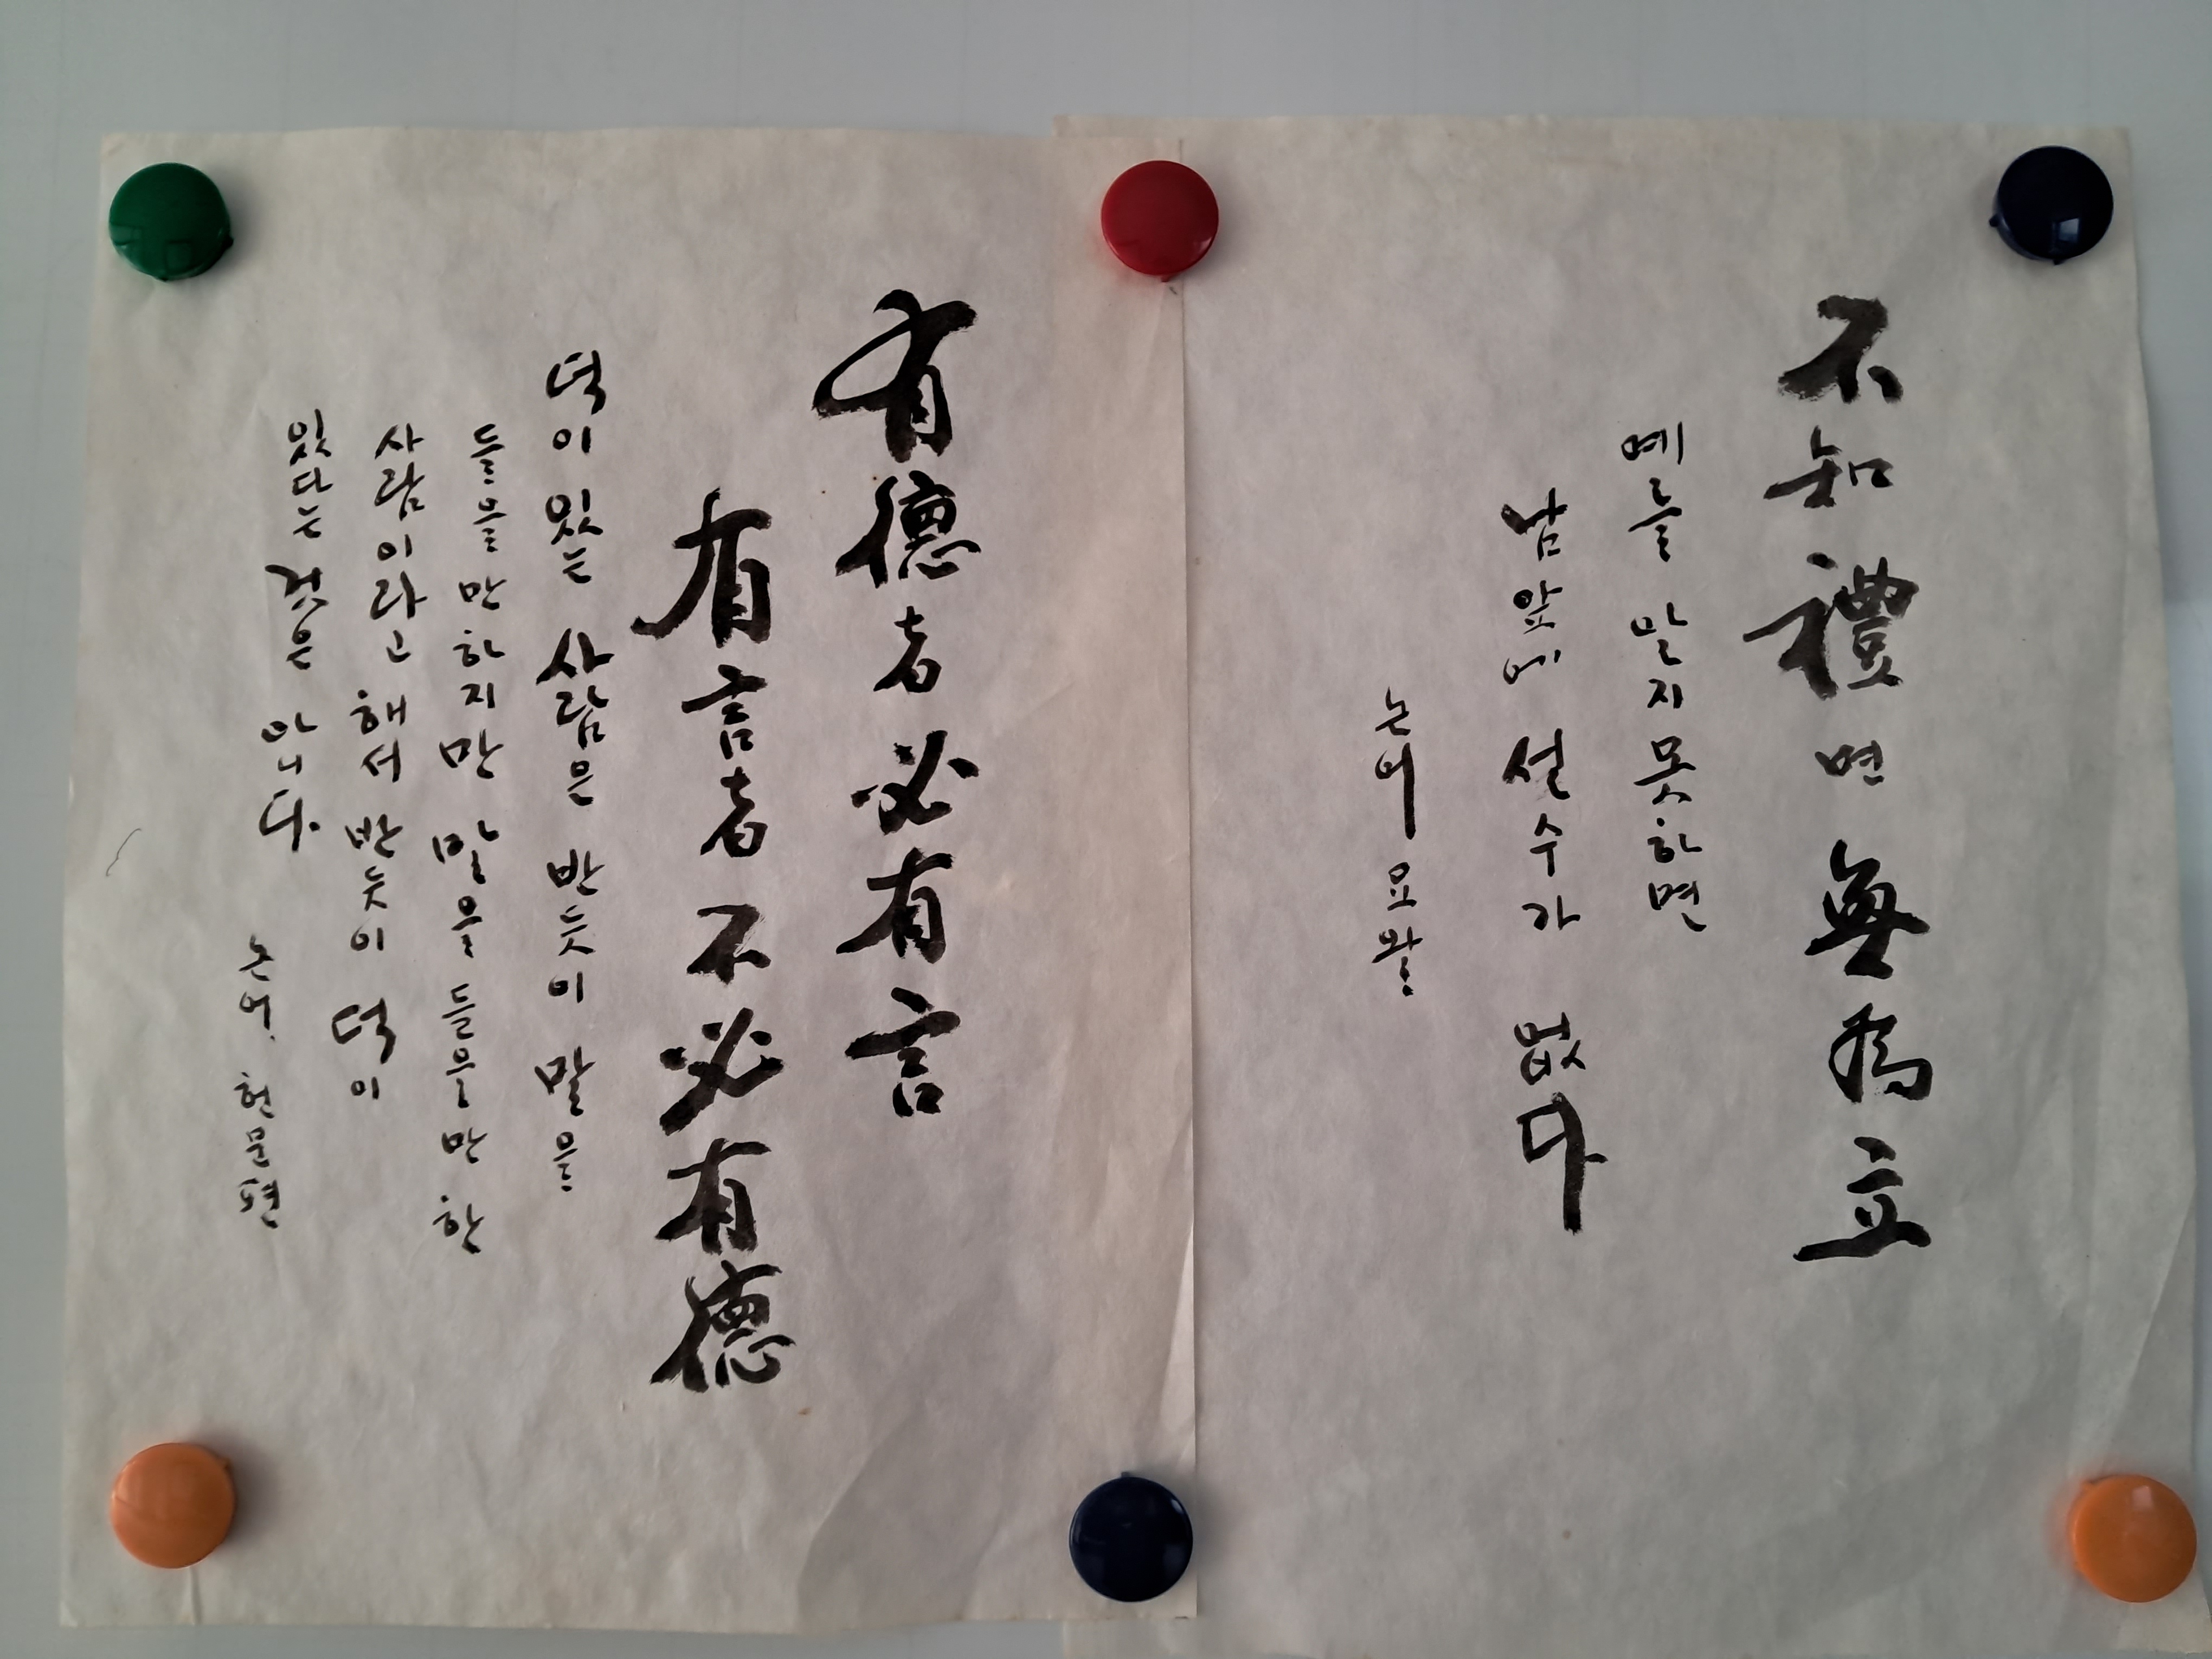 不知禮면 無爲立
예를 알지 못하면
남 앞에 설수가 없다
논어 요왈
有德者必有言
有言者不必有德
덕이 있는 사람은 반듯이 말을
들을만 하지만 말을 들을만 한
사람이라고 해서 반듯이 덕이
있다는 것은 아니다.
논어. 헌문편